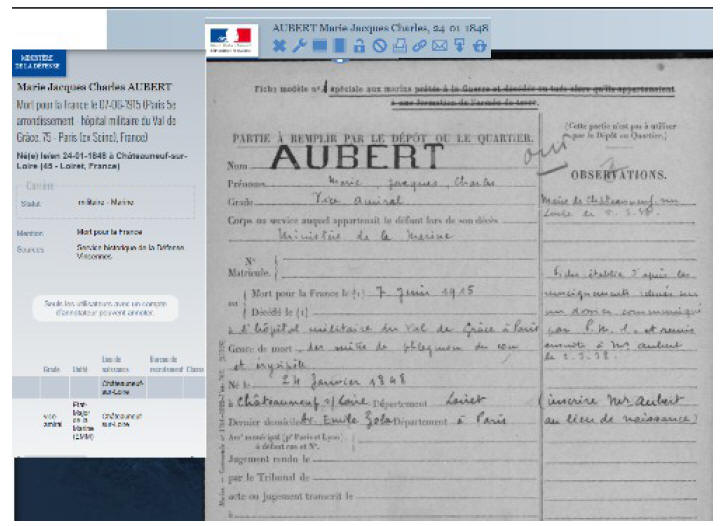 MINISTÈRE
DE LA DÉFENSE
Marie Jacques Charles AUBERT
Mort pour la France le 07-06-1915 (Paris 5e
arrondissement - hôpital militaire du Val de
Grâce, 75 - Paris (ex Seine), France)
Né(e) le/en 24-01-1848 à Châteauneuf-sur-
Loire (45 - Loiret, France)
Carrière
Statut militaire - Marine
Mention Mort pour la France
Sources Service historique de la Défense
Vincennes
Seuls les utilisateurs avec un compte
d'annotateur peuvent annoter.
Grade Unité Lieu de naissance Bureau de recrutement Classe
Châteauneuf-
sur-Loire
vice-amiral Etat-Major de la Marine (EMM) Châteauneuf-sur-Loire
AUBERT Marie Jacques Charles, 24-01-1848
Fiche modèle n° 1 spéciale aux marins prêtés à la Guerre et décédés ou tués alors qu'ils appartenaient
à une formation de l'armée de terre.
PARTIE À REMPLIR PAR LE DÉPÔT OU LE QUARTIER.
(Cette partie n'est pas à utiliser
par le Dépôt ou Quartier.)
oui
Nom AUBERT
OBSERVATIONS.
Prénoms Marie, Jacques, Charles
Grade Vice amiral
Maire de Châteauneuf sur
Loire
Corps ou service auquel appartenait le défunt lors de son décès
Ministère de la Marine
N°
Matricule.
Mort pour la France le (1) 7 juin 1915
ou
Décédé le (1)
à l'hôpital militaire du Val de Grâce à Paris
Fiche établie d'après les
renseignements relevés sur
un dossier communiqué
par et remis
ensuite à Mr Aubert
le 2.3.38.
Genre de mort des suites de phlegmon du cou
et érysipèle
Né le 24 Janvier 1848
à Châteauneuf s/Loire Département Loiret
Dernier domicile Av. Emile Zola Département à Paris
(inscrire Mr Aubert
au lieu de naissance)
Arr° municipal (pr Paris et Lyon)
à défaut rue et N°.
Jugement rendu le
par le Tribunal de
acte ou jugement transcrit le
à